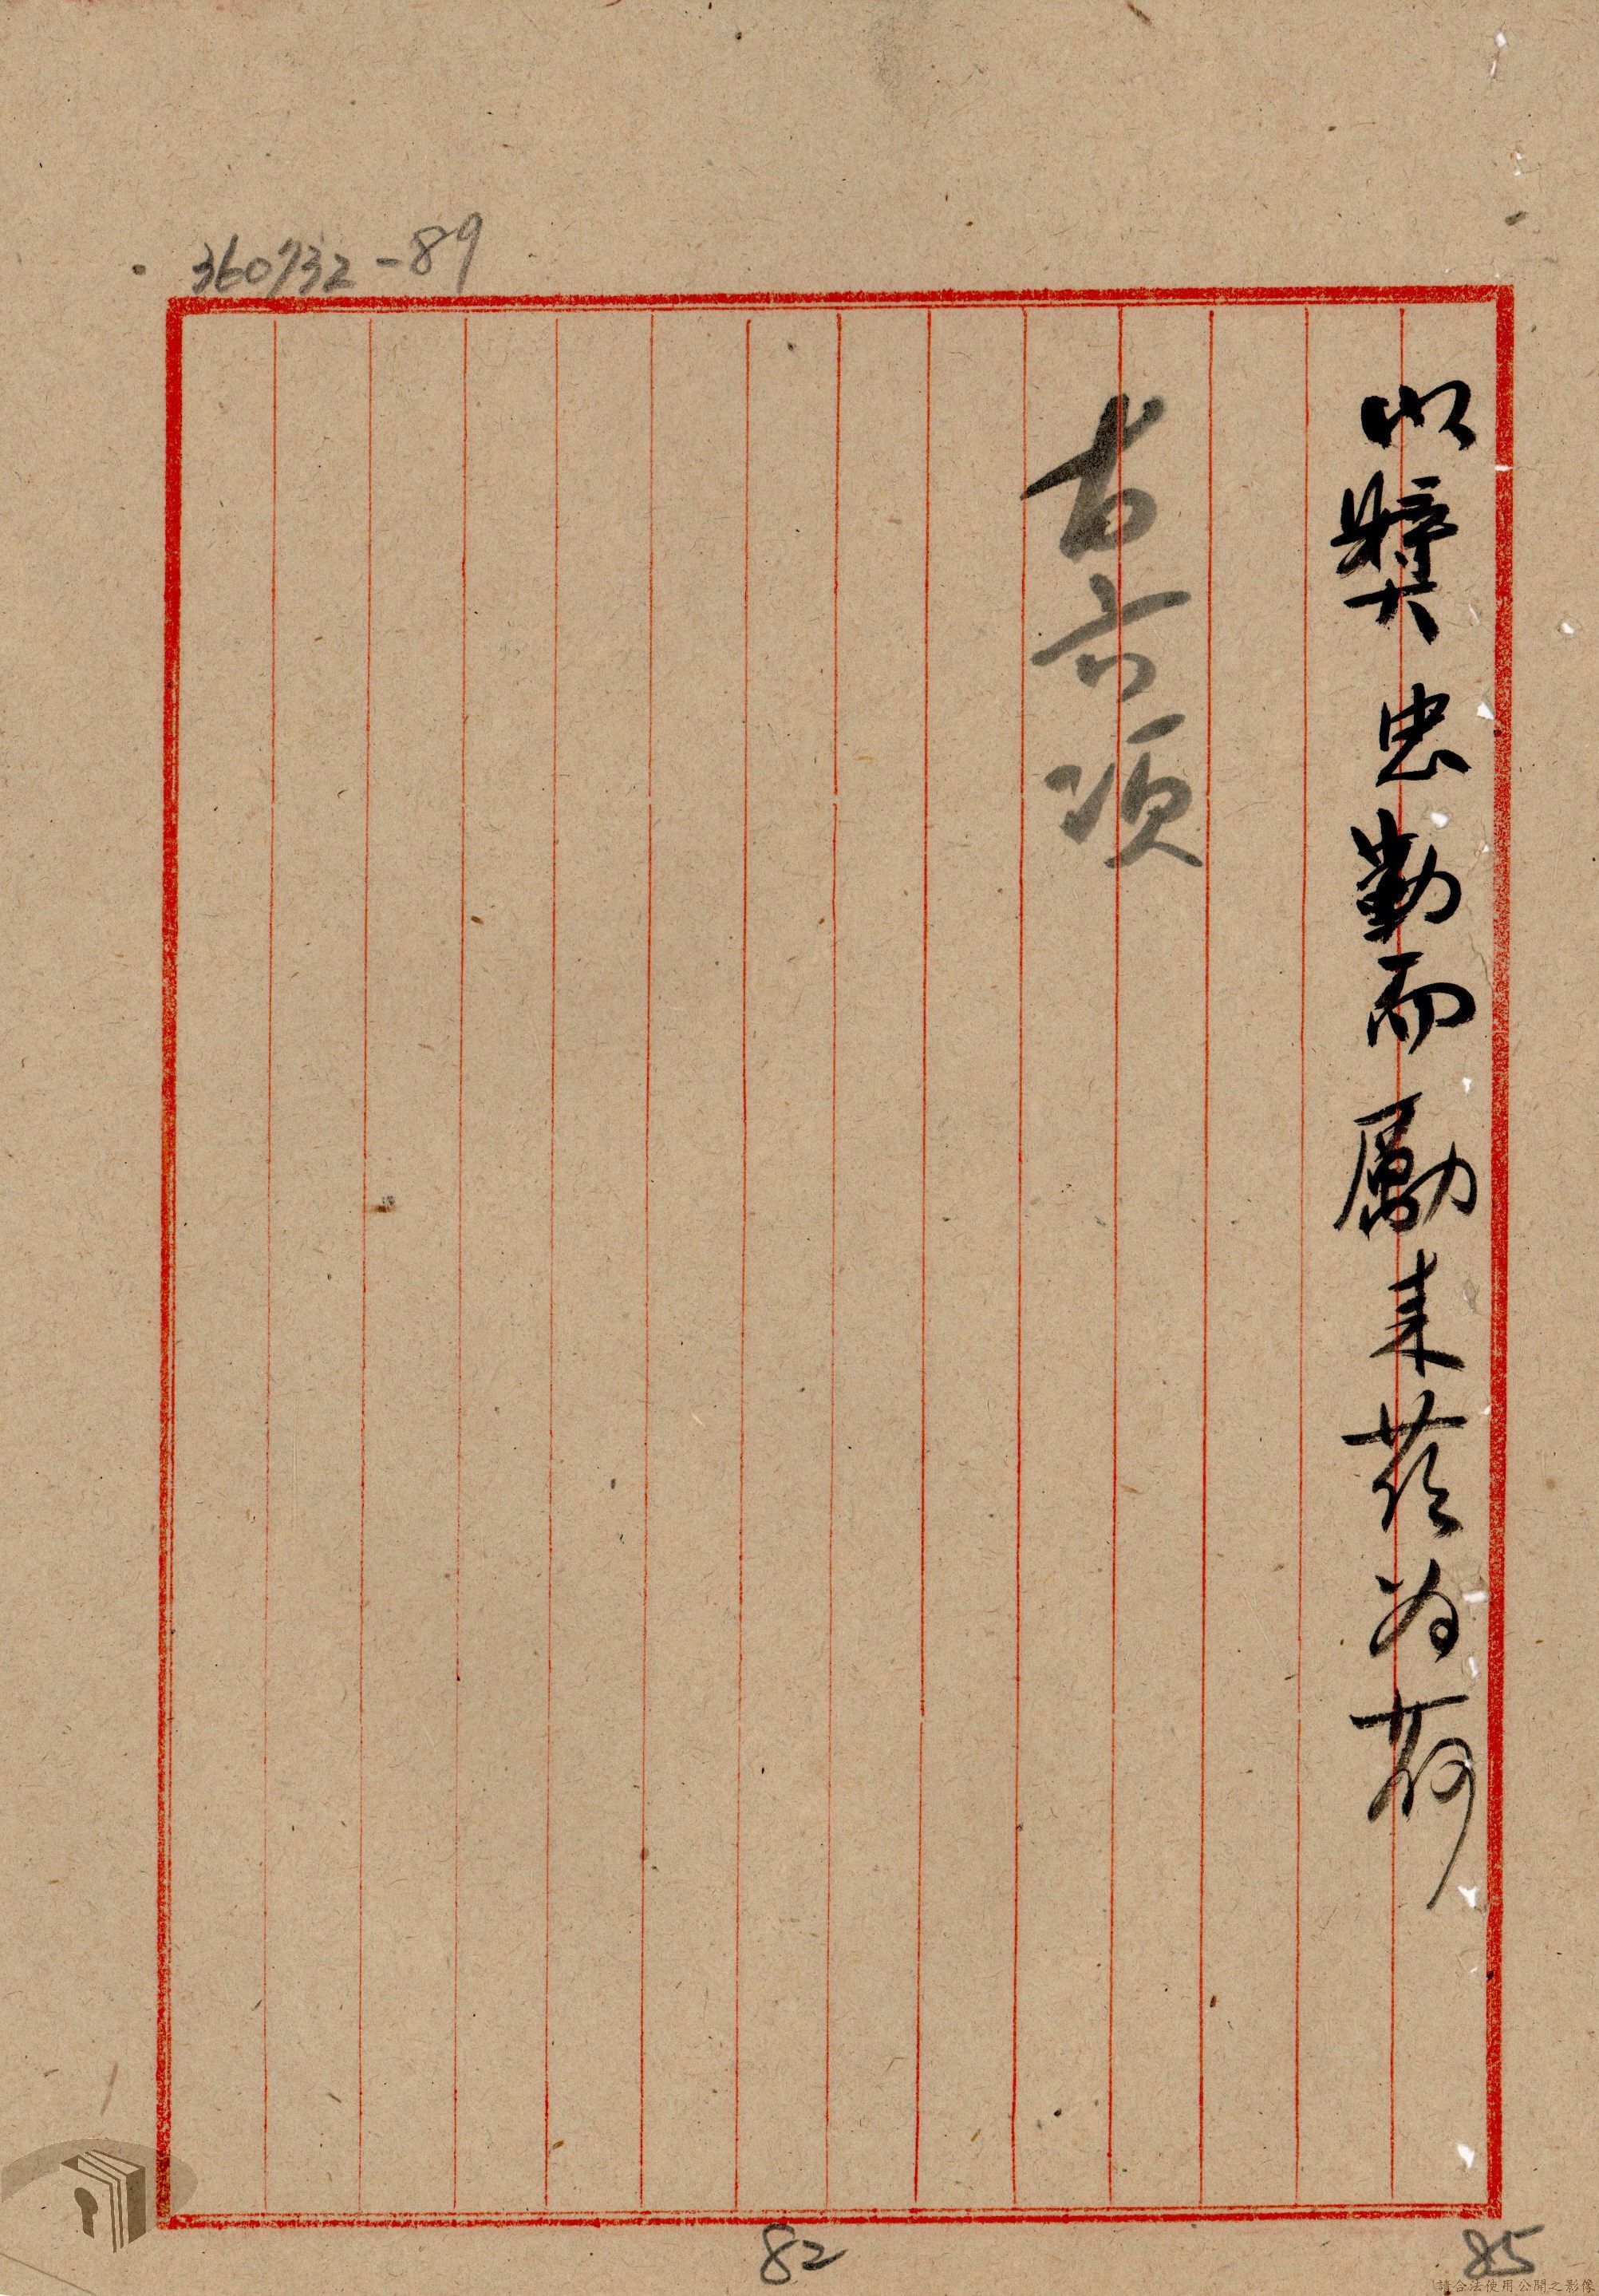 360732-89
以獎忠勤而勵來茲為荷
右六項
82
85
請合法使用公開之影像